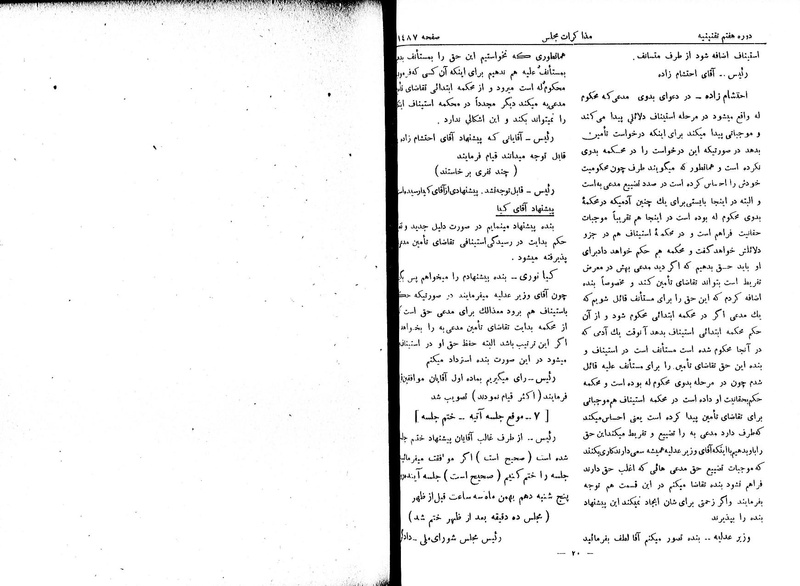 دوره هفتم تقنینیه
مذاکرات مجلس
صفحه ۱۴۸۷
استیناف اضافه شود از طرف متسانف .
رئیس .. آقای احتشام زاده
احتشام زاده ـ در دعوای بدوی مدعی که محکوم
له واقع میشود در مرحله استیناف دلائلی پیدا می‌کند
و موجباتی پیدا میکند برای اینکه درخواست تأمین
بدهد در صورتیکه این درخواست را در محکمه بدوی
نکرده است و همانطور که میگویند طرف چون محکومیت
خودش را احساس کرده است در صدد تضییع مدعی به است
و البته در اینجا بایستی برای یك چنین آدمیکه در محکمهٔ
بدوی محکوم له بوده است در اینجا هم تقریباً موجبات
حقانیت فراهم است و در محکمهٔ استیناف هم در جزو
دلائلش خواهد گفت و محکمه هم حکم خواهد داد برای
او باید حق بدهیم که اگر دید مدعی بهش در معرض
تفریط است بتواند تقاضای تأمین کند و مخصوصاً بنده
اضافه کردم که این حق را برای مستأنف قائل شویم که
یك مدعی اگر در محکمه ابتدائی محکوم شود و از آن
حکم محکمه ابتدائی استیناف بدهد آنوقت یك آدمی که
در آنجا محکوم شده است مستأنف است در استیناف و
بنده این حق تقاضای تأمین را برای مستأنف علیه قائل
شدم چون در مرحله بدوی محکوم له بوده است و محکمه
حکم بحقانیت او داده است در محکمه استیناف هم موجباتی
برای تقاضای تأمین پیدا کرده است یعنی احساس میکند
که طرف دارد مدعی به را تضییع و تفریط میکند این حق
را باو بدهیم با اینکه آقای وزیر عدلیه همیشه سعی دارند کاری بکنند
که موجبات تضییع حق مدعی هائی که اغلب حق دارند
فراهم نشود بنده تقاضا میکنم در این قسمت هم توجه
بفرمایند و اگر زحمتی برای شان ایجاد نمیکند این پیشنهاد
بنده را بپذیرند
وزیر عدلیه .. بنده تصور میکنم آقا لطف بفرمائید
همانطوری که نخواستیم این حق را بمستأنف
بمستأنف علیه هم ندهیم برای اینکه آن کسی که
محکوم له است میرود و از محکمه ابتدائی تقاضای
مدعی به میکند دیگر مجدداً در محکمه استیناف
را نمیتواند بکند و این اشکالی ندارد .
رئیس ـ آقایانی که پیشنهاد آقای احتشام زاده
قابل توجه میدانند قیام فرمایند
( چند نفری برخاستند )
رئیس ـ قابل توجه نشد. پیشنهادی از آقای کیا رسیده
پیشنهاد آقای کیا
بنده پیشنهاد مینمایم در صورت دلیل جدید و
حکم بدایت در رسیدگی استینافی تقاضای تأمین
پذیرفته میشود .
کیا نوری ـ بنده پیشنهادم را میخواهم پس
چون آقای وزیر عدلیه میفرمایند در صورتیکه
باستیناف هم برود معذالك برای مدعی حق است
از محکمه بدایت تقاضای تأمین مدعی به را
اگر این ترتیب باشد البته حفظ حق او در
میشود در این صورت بنده استرداد میکنم
رئیس .. رای میگیریم بماده اول آقایان موافقین
فرمایند ( اکثر قیام نمودند ) تصویب شد
[ ۷ ـ موقع جلسه آتیه .. ختم جلسه ]
رئیس .. از طرف غالب آقایان پیشنهاد ختم
شده است ( صحیح است ) اگر موافقت
جلسه را ختم کنیم ( صحیح است ) جلسه
پنج شنبه دهم بهمن ماه سه ساعت قبل از ظهر
( مجلس ده دقیقه بعد از ظهر ختم شد )
رئیس مجلس شورای ملی ..
— ۲۰ —